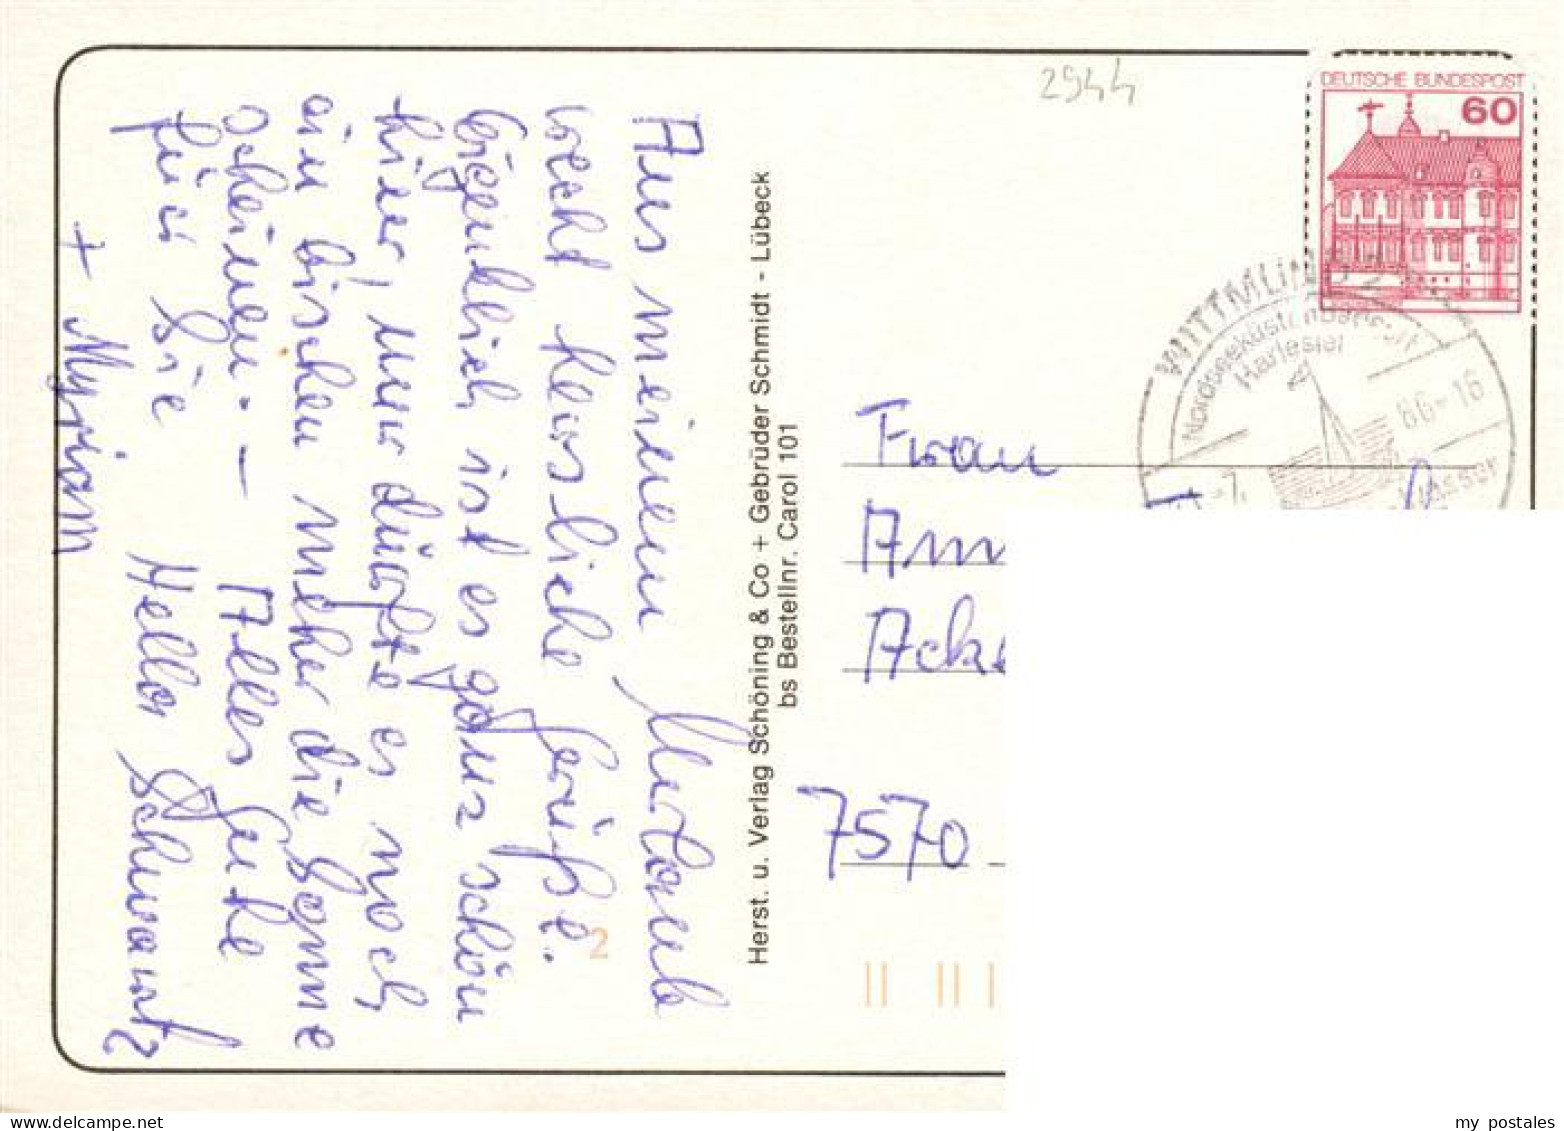 2944
DEUTSCHE BUNDESPOST
60
WITTMUND
Nordseeküstenbadeort
Karlesiel
86-16
-7.
Aus meinem Urlaub
recht herzliche Grüße.
Eigentlich ist es ganz schön
hier, nur dürfte es noch
ein bischen meher die Sonne
scheinen. — Alles Gute
für Sie Hella Schwartz
+ Myriam
Herst. u. Verlag Schöning & Co + Gebrüder Schmidt - Lübeck
bs Bestellnr. Carol 101
Frau
7570
2
my postales